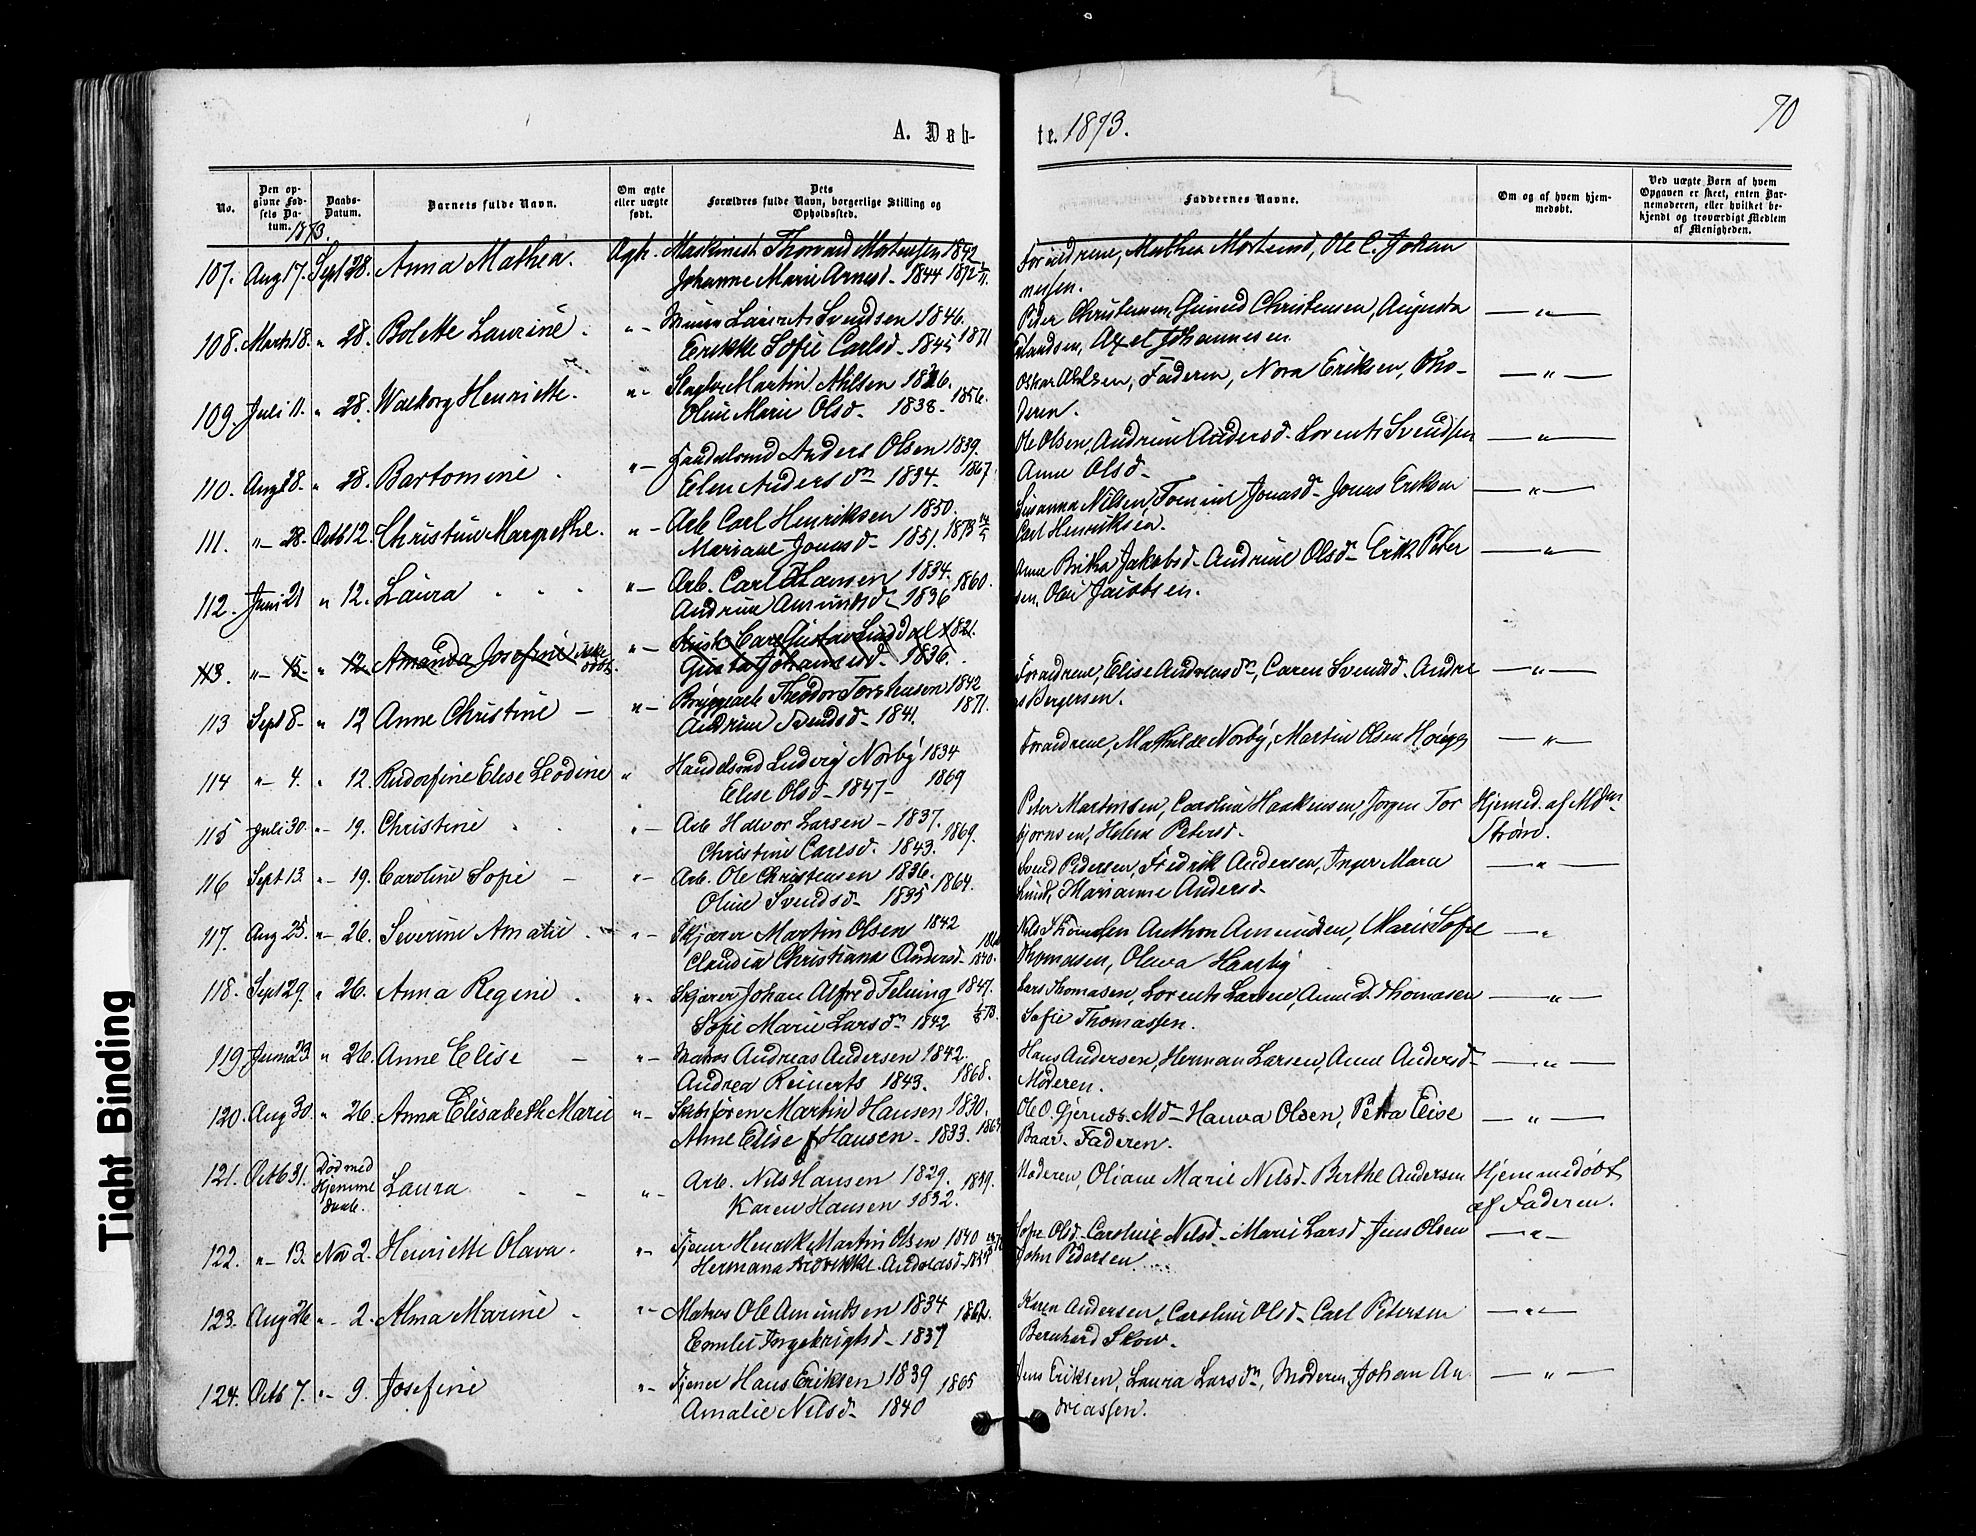 70
A. Døb-
te. 1873.
No.
Den op-
givne Fød-
sels Da-
tum.
1873.
Daabs-
Datum.
Barnets fulde Navn.
Om ægte
eller uægte
født.
Dets
Forældres fulde Navn, borgerlige Stilling og
Opholdssted.
Faddernes Navne.
Om og af hvem hjem-
medøbt.
Ved uægte Børn af hvem
Opgaven er skeet, enten Bar-
nemoderen, eller hvilket be-
kjendt og troværdigt Medlem
af Menigheden.
107. Aug 17. Sept 28. Anna Mathea. Ægte. Maskinist Thorvard Mortensen 1842
Johanne Marie Arnesd. 1844 1872
Forældrene, Mathea Mortensd, Ole C. Johan
nesen.
108. Marts 18. " 28. Bolette Laurine. "- Murer Laurits Svendsen 1846.
Erikke Sofie Carlsd. 1845 1871
Peter Christensen, Christensen, Augusta
Axel Johannesen —"—
109. Juli 11. " 28. Walborg Henriette. "- Martin 1826.
Oline Marie Olsd. 1838. 1856.
Oskar Faderen, Nora Eriksen, Mo-
deren. —"—
110. Aug 28. " 28. Bartomine. "- Anders Olsen 1839.
Elen Andersdn 1834. 1867.
Ole Olsen, Andrine Andersd. Lorents Svendsen
Anne Olsd. —"—
111. "- 28. Octb 12. Christine Margrethe. "- Arb. Carl Henriksen 1850.
Mariane Jonasd. 1851. 1873
Susanna Nilsen, Jonasd. Jonas Eriksen
Carl Henriksen. —"—
112. Juni 21 " 12. Laura "- Arb. Carl Hansen 1834. 1860.
Andrine Amundsd. 1836
Anne Jakobsd. Andrine Olsd. Erik Peter
sen, Jacobsen. —"—
113. "- 15. " 12. Amanda Josefine ikke
døbt. "- Carl Gustav Lind 1821.
Johannesd. 1836.
113 Sept 8- " 12 Anne Christine - "- Theodor Torstensen 1842
Andrine Svendsd. 1841. 1871.
Forældrene, Elise Andreasdn, Caren Svendsd. Andre
as Bergersen. —"—
114 "- 4. " 12. Rudolfine Elise Leodine " Handelsmd Ludvig Norby 1834
Elise Olsd. 1847- 1869
Forældrene, Mathilde Norby, Martin Olsen —"—
115 Juli 30. "- 19. Christine "- Arb Halvor Larsen - 1837.
Christine Carlsd. 1843. 1869.
Peter Martinsen, Caroline Haakensen, Jørgen Tor
bjørnsen, Helene Petersd. Hjemed. af
Strøm.
116 Sept 13. "- 19. Caroline Sofie - "- Arb. Ole Christensen 1836.
Oline Svendsd. 1835 1864.
Svend Pedersen, Fredrik Andersen, Inger Marie
Lund, Marianne Andersd. —"—
117. Aug 25. "- 26. Severine Amalie "- Skjærer Martin Olsen 1842
Claudia Christiana Andersd. 1840.
Anthon Amundsen, Marie Sofie
Thomasen, Haaby —"
118. Sept 29. " 26. Anna Regine "- Skjærer Johan Alfred 1847.
Sofie Marie Larsdn 1842
Lars Thomasen, Lorents Larsen, Anne D. Thomasen
Sofie Thomassen. —"—
119. 23. " 26. Anne Elise - "- Matros Andreas Andersen 1842.
Andrea Reinerts 1843. 1868.
Hans Andersen, Herman Larsen, Anne Andersd.
Moderen. —"—
120. Aug 30. " 26. Anna Elisabeth Marie "- Martin Hansen 1830.
Anne Elise Hansen. 1833.
Ole O. Hanva Olsen, Petra Elise
Baar. Faderen. —"—
121. Octb 31. Død med
Hjemme
daab. Laura "- Arb. Nils Hansen 1829.
Karen Hansen 1832. 1859.
Moderen, Oliane Marie Nilsd. Berthe Andersen
Hjemmedøbt
af Faderen.
122. "- 13. Nov 2. Henriette Olava. "- Tjener Henrik Martin Olsen 1840
Hermana Fredrikke Andreasd.
Sofie Olsd. Caroline Nilsd. Marie Larsd Jens Olsen
John Pedersen —"—
123. Aug 26 "- 2. Alma Marine "- Matros Ole Amundsen 1834
Emilie Ingebrigtsd. 1837
Karen Andersen, Caroline Olsd. Carl Petersen
Bernhard Skow. —"—
124. Octb 7. "- 9. Josefine "- Tjener Hans Eriksen 1839 1865
Amalie Nilsd. 1840
Jens Eriksen, Laura Larsdn, Moderen, Johan An
dreassen. —"—
Tight Binding